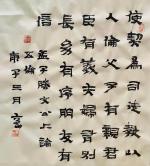 使契為司徒教以
人倫父子有親君
臣有義夫婦有別
長幼有序朋友有
信
孟子滕文公上論
五倫
庚子三月